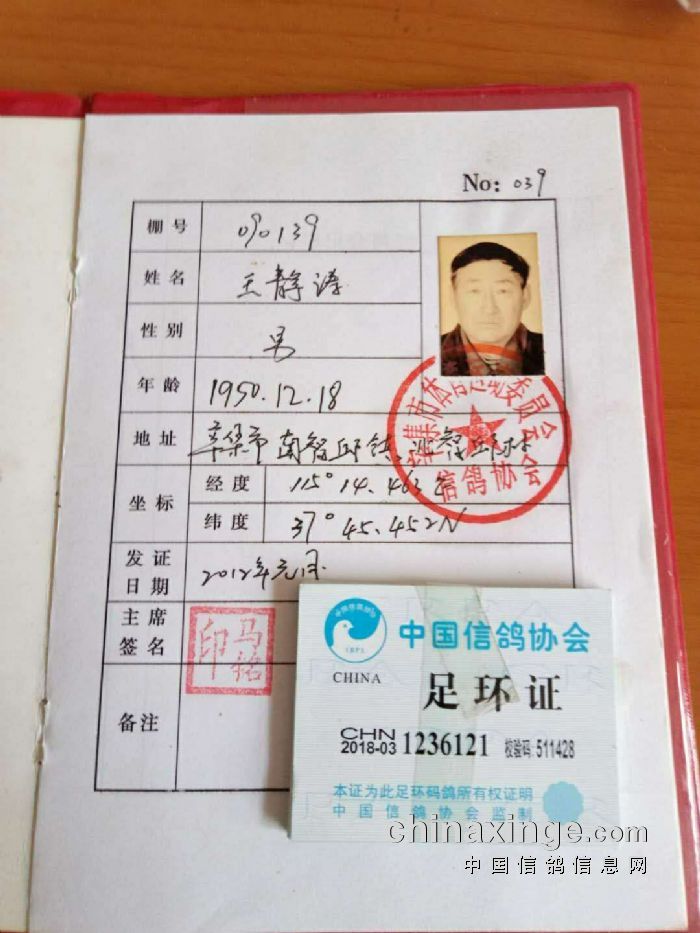 No: 039
棚号 090139
姓名 王静涛
性别 男
年龄 1950.12.18
地址 辛集市南智邱镇
坐标 经度 115° 14.463E
纬度 37° 45.452N
发证日期 2012年元月
主席签名 马铭印
备注
辛集市体育运动委员会
信鸽协会
中国信鸽协会
CRPA
CHINA
足环证
CHN
2018-03 1236121 校验码: 511428
本证为此足环码鸽所有权证明
中国信鸽协会监制
chinaxinge.com
中国信鸽信息网